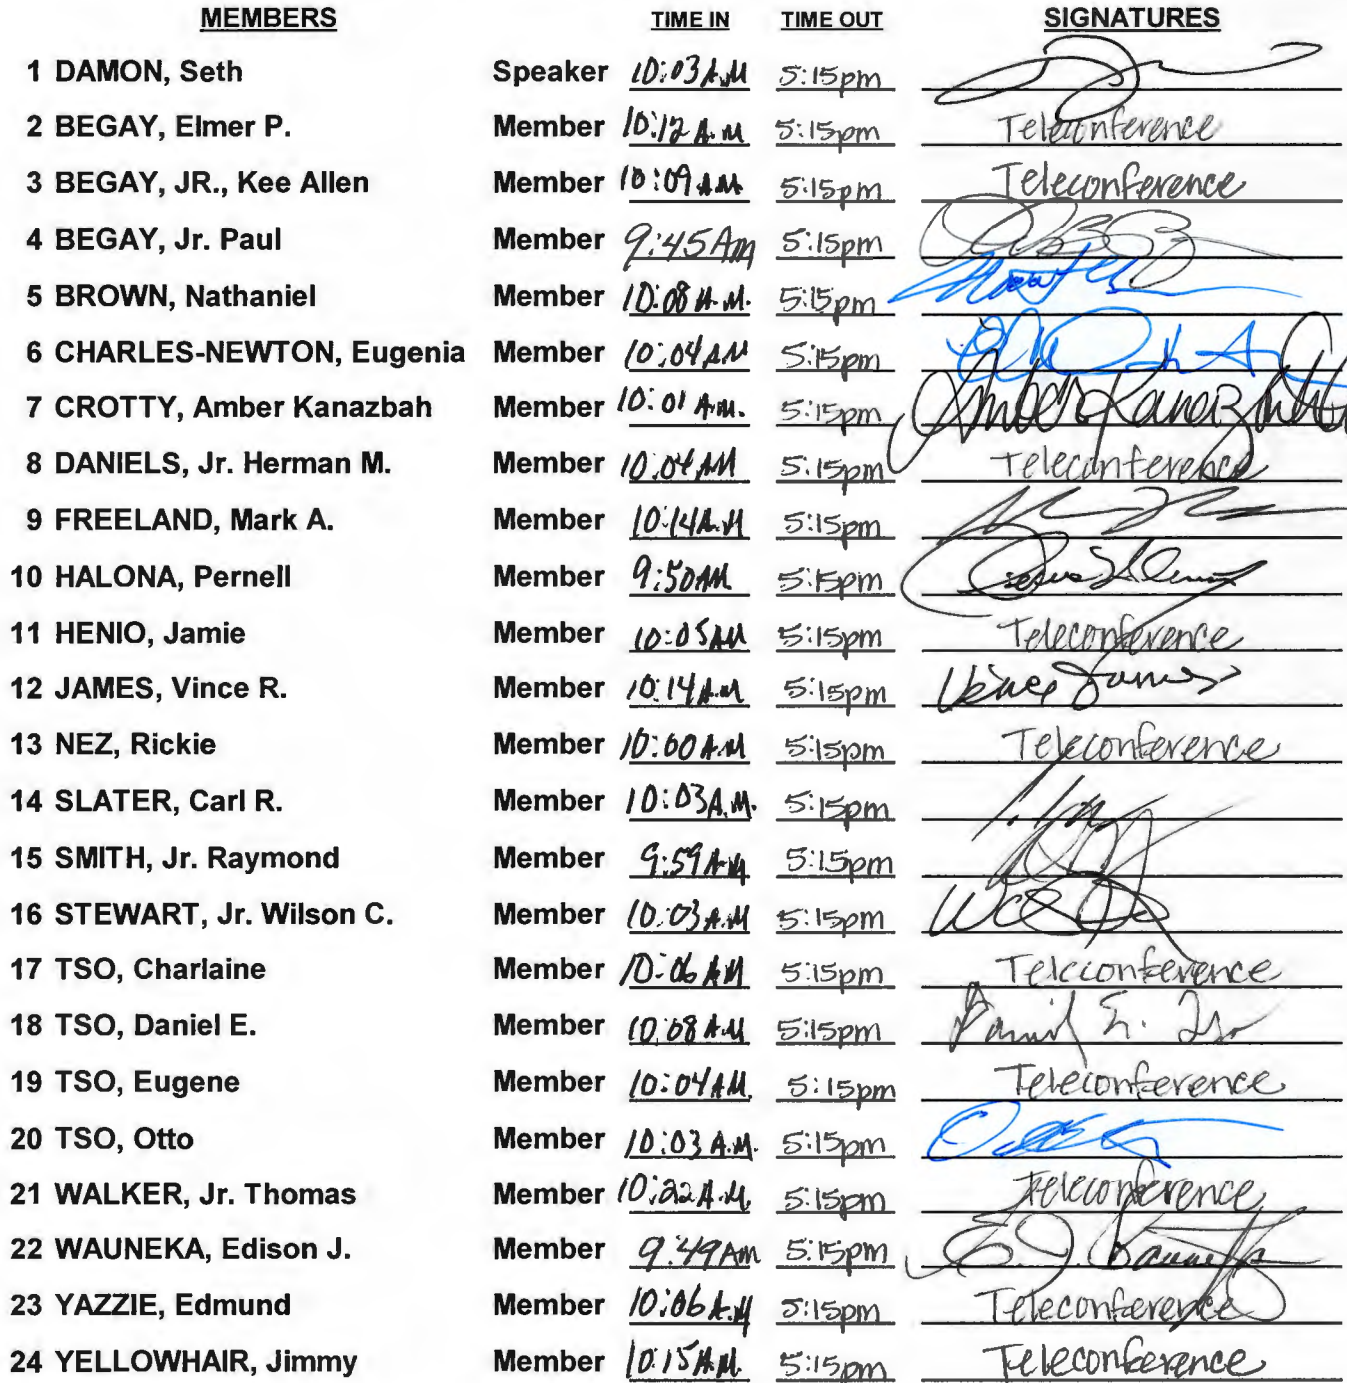 MEMBERS TIME IN TIME OUT SIGNATURES
1 DAMON, Seth Speaker 10:03 A.M 5:15pm
2 BEGAY, Elmer P. Member 10:12 A.M 5:15pm Teleconference
3 BEGAY, JR., Kee Allen Member 10:09 AM 5:15pm Teleconference
4 BEGAY, Jr. Paul Member 9:45 Am 5:15pm
5 BROWN, Nathaniel Member 10:08 A.M. 5:15pm
6 CHARLES-NEWTON, Eugenia Member 10:04 AM 5:15pm
7 CROTTY, Amber Kanazbah Member 10:01 A.M. 5:15pm Amber Kanazbah
8 DANIELS, Jr. Herman M. Member 10:04 AM 5:15pm Teleconference
9 FREELAND, Mark A. Member 10:14 A.M 5:15pm
10 HALONA, Pernell Member 9:50 AM 5:15pm
11 HENIO, Jamie Member 10:05 AM 5:15pm Teleconference
12 JAMES, Vince R. Member 10:14 A.M 5:15pm Vince James
13 NEZ, Rickie Member 10:00 A.M 5:15pm Teleconference
14 SLATER, Carl R. Member 10:03 A.M. 5:15pm
15 SMITH, Jr. Raymond Member 9:59 A.M 5:15pm
16 STEWART, Jr. Wilson C. Member 10:03 A.M 5:15pm
17 TSO, Charlaine Member 10:06 AM 5:15pm Teleconference
18 TSO, Daniel E. Member 10:08 A.M 5:15pm Daniel E. Tso
19 TSO, Eugene Member 10:04 AM. 5:15pm Teleconference
20 TSO, Otto Member 10:03 A.M. 5:15pm
21 WALKER, Jr. Thomas Member 10:22 A.M. 5:15pm Teleconference
22 WAUNEKA, Edison J. Member 9:49 Am 5:15pm
23 YAZZIE, Edmund Member 10:06 A.M 5:15pm Teleconference
24 YELLOWHAIR, Jimmy Member 10:15 A.M. 5:15pm Teleconference